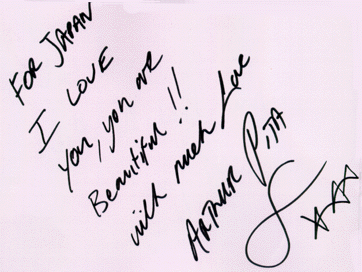 FOR JAPAN
I LOVE
you, you are
Beautiful!!
with much Love
ARTHUR PITA